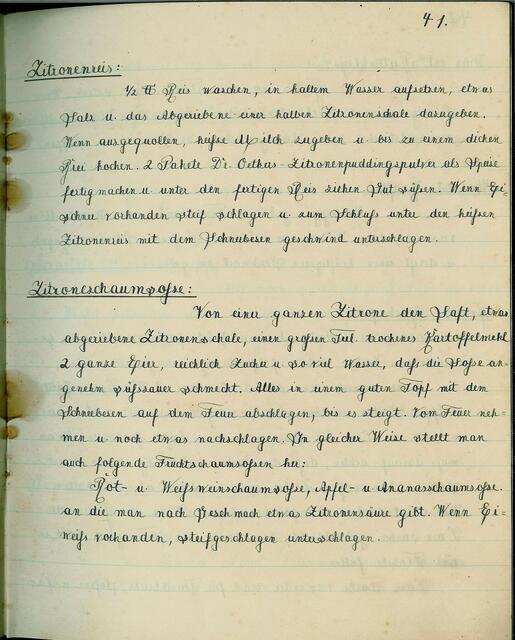 41.
Zitronenreis:
1/2 ℔ Reis waschen, in kaltem Wasser aufsetzen, etwas
Salz u. das Abgeriebene einer halben Zitronenschale dazugeben.
Wenn ausgequollen, heiße Milch zugeben u. bis zu einem dicken
Brei kochen. 2 Pakete Dr. Oetkas-Zitronenpuddingspulver als Speise
fertigmachen u. unter den fertigen Reis ziehen Gut süßen. Wenn Ei-
schnee vorhanden steif schlagen u. zum Schluß unter den heißen
Zitronenreis mit dem Schneebesen geschwind unterschlagen.
Zitroneschaumsoße:
Von einer ganzen Zitrone den Saft, etwas
abgeriebene Zitronenschale, einen großen Teel. trockenes Kartoffelmehl
2 ganze Eier, reichlich Zucker u. so viel Wasser, daß die Soße an-
genehm süßsauer schmeckt. Alles in einem guten Topf mit dem
Schneebesen auf dem Feuer abschlagen, bis es steigt. Vom Feuer neh-
men u. noch etwas nachschlagen. In gleicher Weise stellt man
auch folgende Fruchtschaumsoßen her:
Rot- u. Weißweinschaumsoße, Apfel- u. Ananasschaumsoße.
an die man nach Geschmach etwas Zitronensäure gibt. Wenn Ei-
weiß vorhanden, steifgeschlagen unterschlagen.